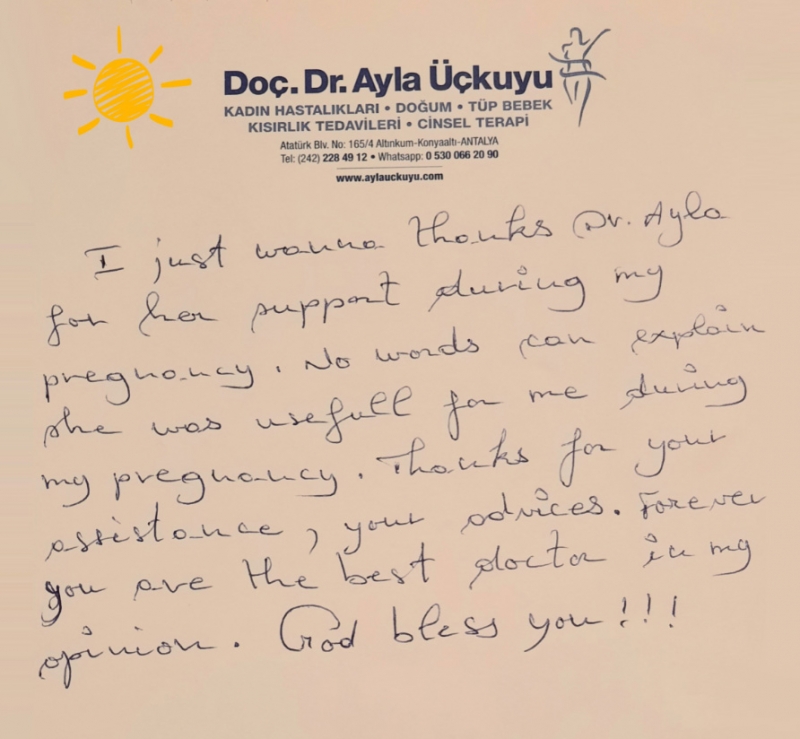 Doç. Dr. Ayla Üçkuyu
KADIN HASTALIKLARI • DOĞUM • TÜP BEBEK
KISIRLIK TEDAVİLERİ • CİNSEL TERAPİ
Atatürk Blv. No: 165/4 Altınkum-Konyaaltı-ANTALYA
Tel: (242) 228 49 12 • Whatsapp: 0 530 066 20 90
www.aylauckuyu.com
I just wanna thanks Dr. Ayla
for her support during my
pregnancy. No words can explain
she was usefull for me during
my pregnancy. Thanks for your
assistance, your advices. Forever
you are the best doctor in my
opinion. God bless you!!!